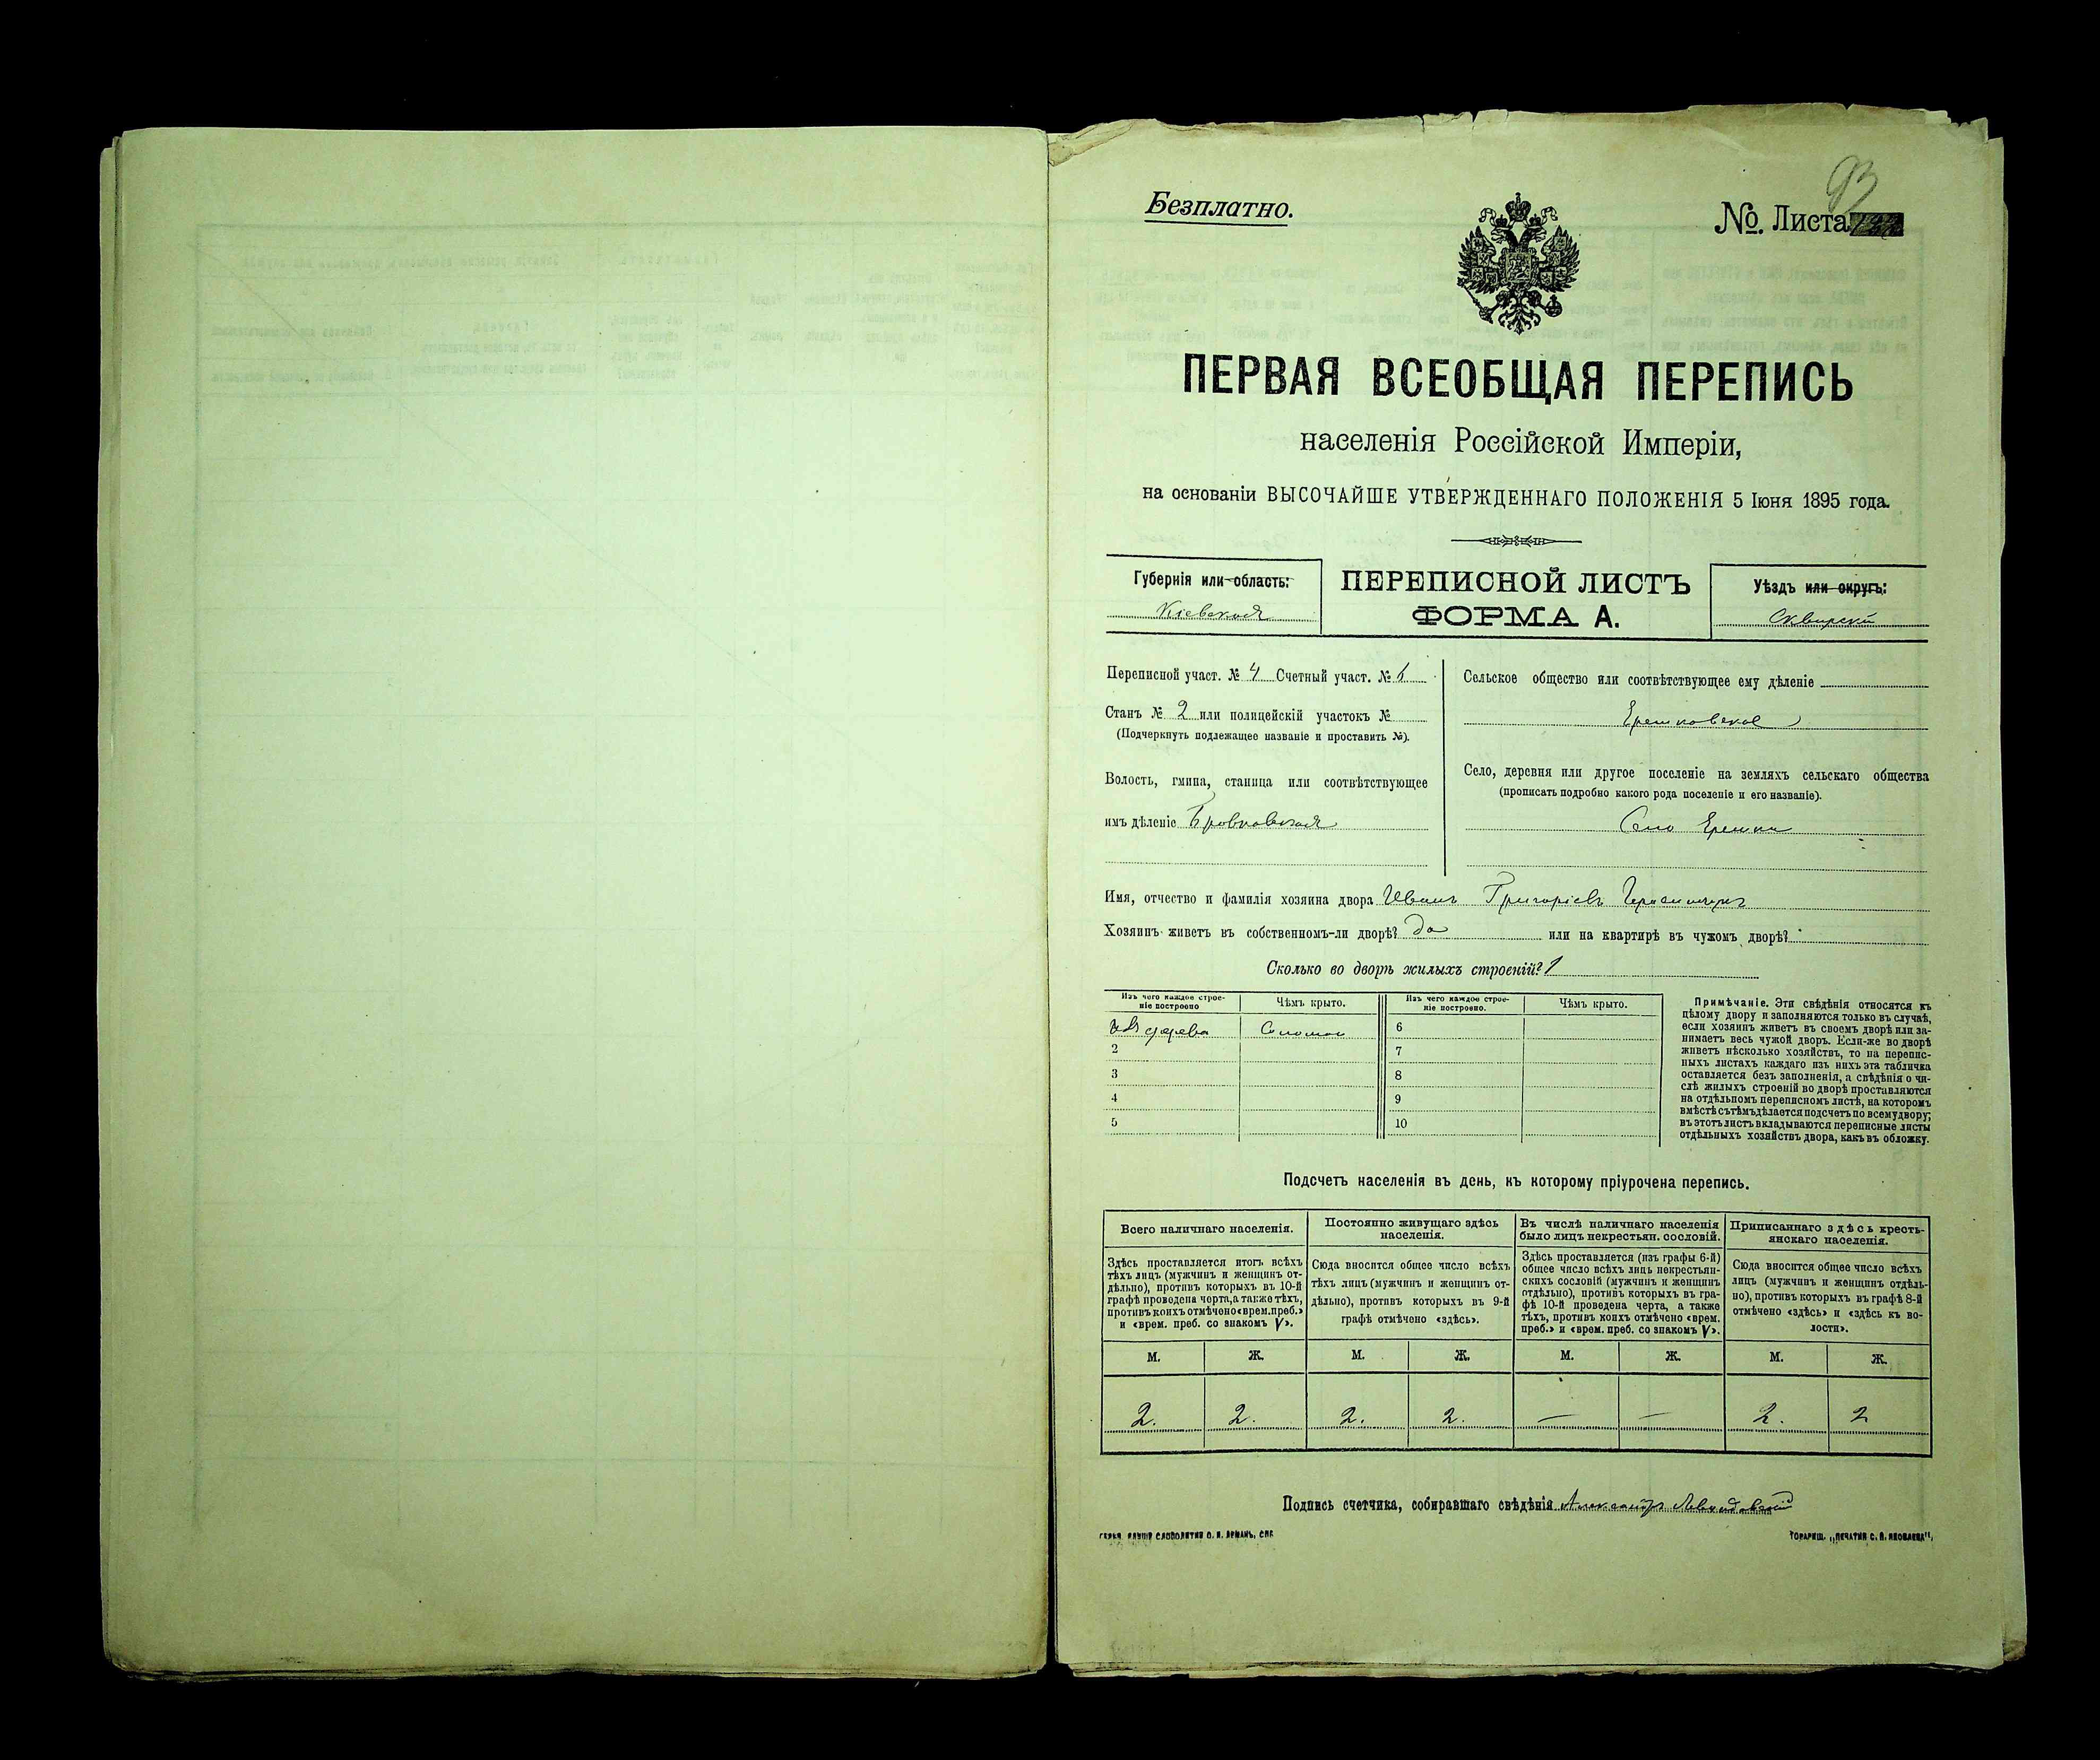 93
Безплатно.
№. Листа
ПЕРВАЯ ВСЕОБЩАЯ ПЕРЕПИСЬ
населенія Россійской Имперіи,
на основаніи ВЫСОЧАЙШЕ УТВЕРЖДЕННАГО ПОЛОЖЕНІЯ 5 Іюня 1895 года.
Губернія или область:
Кіевская
ПЕРЕПИСНОЙ ЛИСТЪ
ФОРМА А.
Уѣздъ или округъ:
Сквирскій
Переписной участ. № 4 Счетный участ. № 6
Станъ № 2 или полицейскій участокъ №
(Подчеркнуть подлежащее названіе и проставить №).
Волость, гмина, станица или соотвѣтствующее
имъ дѣленіе Бровковская
Сельское общество или соотвѣтствующее ему дѣленіе
Ерешковское
Село, деревня или другое поселеніе на земляхъ сельскаго общества
(прописать подробно какого рода поселеніе и его названіе).
Село Ерешки
Имя, отчество и фамилія хозяина двора Иванъ Григоріевъ Герасимчукъ
Хозяинъ живетъ въ собственномъ-ли дворѣ? да или на квартирѣ въ чужомъ дворѣ?
Сколько во дворѣ жилыхъ строеній? 1
Изъ чего каждое строе-
ніе построено
Чѣмъ крыто.
Изъ чего каждое строе-
ніе построено.
Чѣмъ крыто.
изъ дерева Соломою 6
2 7
3 8
4 9
5 10
Примѣчаніе. Эти свѣдѣнія относятся къ
цѣлому двору и заполняются только въ случаѣ,
если хозяинъ живетъ въ своемъ дворѣ или за-
нимаетъ весь чужой дворъ. Если-же во дворѣ
живетъ нѣсколько хозяйствъ, то на перепис-
ныхъ листахъ каждаго изъ нихъ эта табличка
оставляется безъ заполненія, а свѣдѣнія о чи-
слѣ жилыхъ строеній во дворѣ проставляются
на отдѣльномъ переписномъ листѣ, на которомъ
вмѣстѣ съ тѣмъ дѣлается подсчетъ по всему двору;
въ этотъ листъ вкладываются переписные листы
отдѣльныхъ хозяйствъ двора, какъ въ обложку.
Подсчетъ населенія въ день, къ которому пріурочена перепись.
Всего наличнаго населенія.
Здѣсь проставляется итогъ всѣхъ
тѣхъ лицъ (мужчинъ и женщинъ от-
дѣльно), противъ которыхъ въ 10-й
графѣ проведена черта, а также тѣхъ,
противъ коихъ отмѣчено «врем. преб.»
и «врем. преб. со знакомъ V».
Постоянно живущаго здѣсь
населенія.
Сюда вносится общее число всѣхъ
тѣхъ лицъ (мужчинъ и женщинъ от-
дѣльно), противъ которыхъ въ 9-й
графѣ отмѣчено «здѣсь».
Въ числѣ наличнаго населенія
было лицъ некрестьян. сословій.
Здѣсь проставляется (изъ графы 6-й)
общее число всѣхъ лицъ некрестьян-
скихъ сословій (мужчинъ и женщинъ
отдѣльно), противъ которыхъ въ гра-
фѣ 10-й проведена черта, а также
тѣхъ, противъ коихъ отмѣчено «врем.
преб.» и «врем. преб. со знакомъ V».
Приписаннаго здѣсь кресть-
янскаго населенія.
Сюда вносится общее число всѣхъ
лицъ (мужчинъ и женщинъ отдѣль-
но), противъ которыхъ въ графѣ 8-й
отмѣчено «здѣсь» и «здѣсь къ во-
лости».
М. Ж. М. Ж. М. Ж. М. Ж.
2. 2. 2. 2. — — 2. 2
Подпись счетчика, собиравшаго свѣдѣнія Александръ Левандовскій
ТОВАРИЩ. „ПЕЧАТНЯ С. П. ЯКОВЛЕВА“.